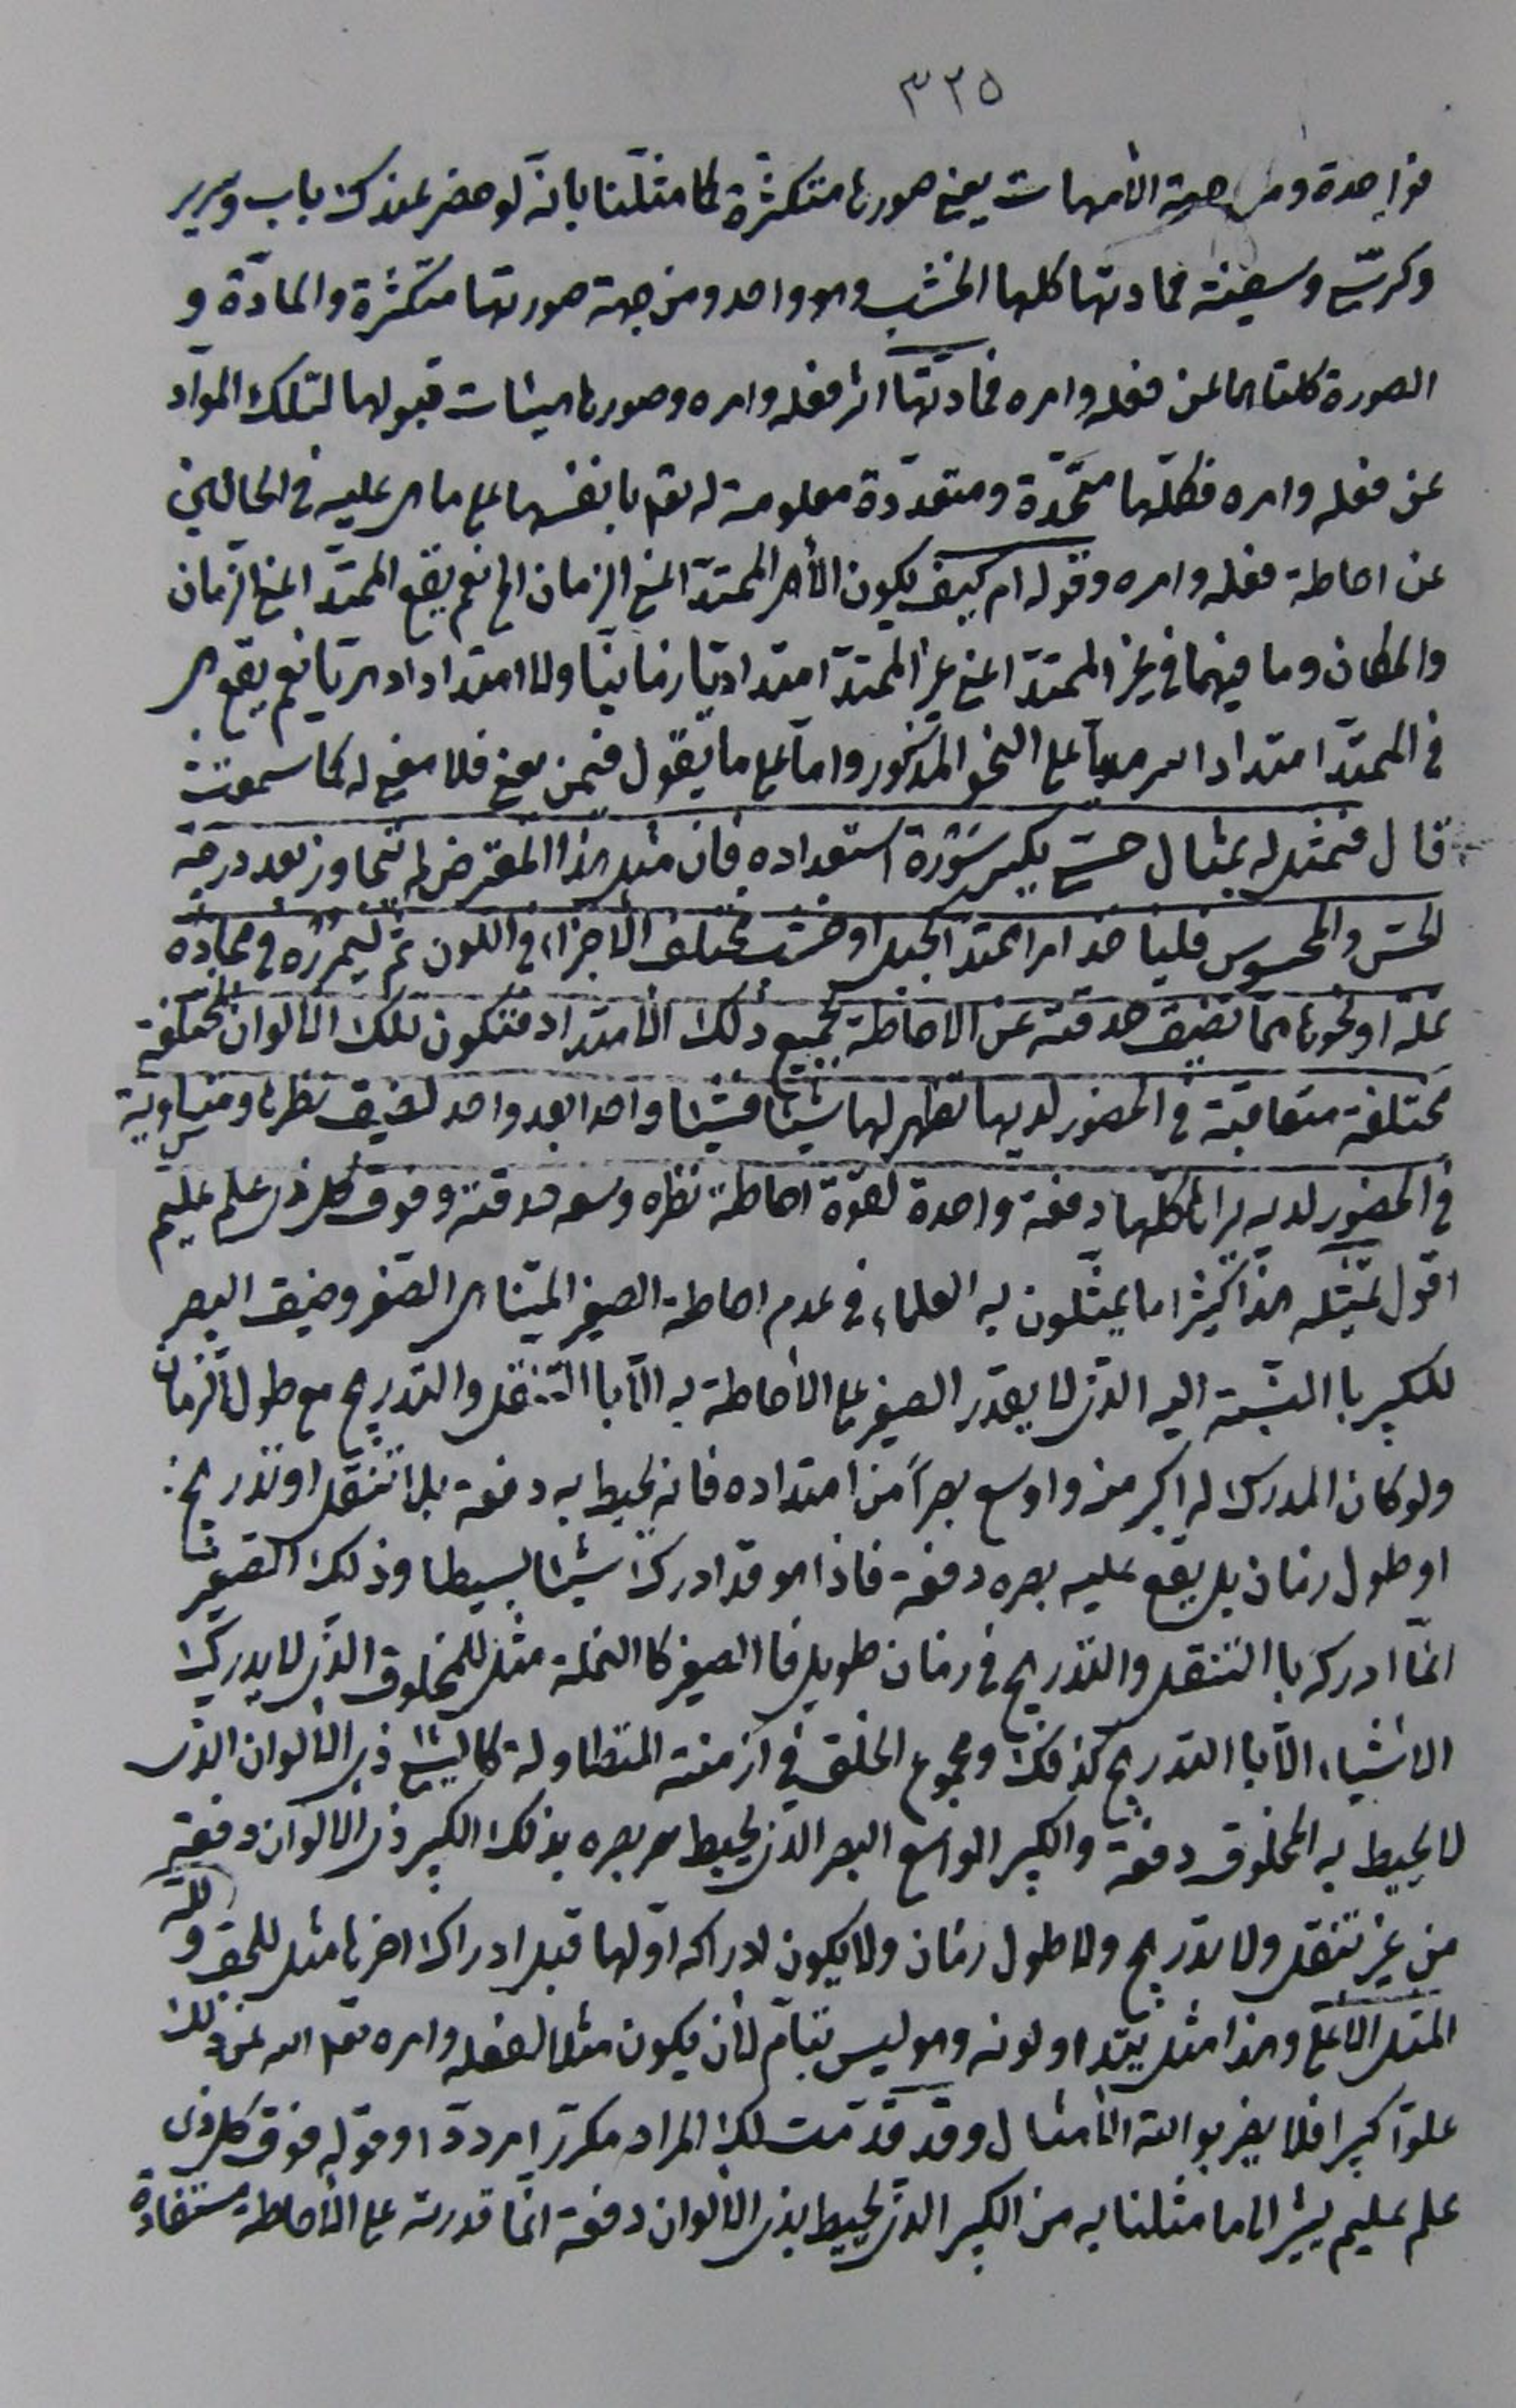 ٣٢٥
فواحدة ومن جهة الأمهات يعني صورها متكثرة كما مثلنا بانه لو حضر عندك باب وسرير
وكرسي وسفينة فمادتها كلها الخشب وهو واحد ومن جهة صورتها متكثرة والمادة و
الصورة كلتاهما عن فعله وامره فمادتها اثر فعله وامره وصورها هيئات قبولها لتلك المواد
عن فعله وامره فكلها متحدة ومتعددة معلومة له تعم بانفسها على ما هي عليه في الحالين
عن احاطة فعله وامره وقوله ام كيف يكون الأمر الممتد اعني الزمان الخ نعم يقع الممتد اعني الزمان
والمكان وما فيهما في غير الممتد اعني غير الممتد امتدادا زمانيا ولا امتدادا دهريا نعم يقع هي
في الممتد امتدادا سرمديا على النحو المذكور واما على ما يقول فيمن يعني فلا معنى له كما سمعت
قال فنمثل له بمثال حسي يكسر سورة استعداده فان مثل هذا المعترض لم يتجاوز بعد درجة
الحس والمحسوس فليأخذ امرا ممتدا كحبل او خشب مختلف الأجزاء في اللون ثم ليمرره في محاذاة
نملة او نحوها مما تضيق حدقته عن الاحاطة بجميع ذلك الامتداد فتكون تلك الالوان المختلفة
مختلفة متعاقبة في الحضور لديها تظهر لها شيئا فشيئا واحدا بعد واحد لضيق نظرها ومتساوية
في الحضور لديه يراها كلها دفعة واحدة لقوة احاطة نظره وسعة حدقته وفوق كل ذي علم عليم
اقول تمثيله هذا كثيرا ما يمثلون به العلماء في عدم احاطة الصغير المتناهي الصغر وضيق البصر
للكبير بالنسبة اليه الذي لا يقدر الصغير على الأحاطة به الا بالتنقل والتدريج مع طول الزمان
ولو كان المدرك له اكبر منه واوسع بصرا من امتداده فانه يحيط به دفعة بلا تنقل او تدريج
او طول زمان بل يقع عليه بصره دفعة فاذا هو قد ادرك شيئا بسيطا وذلك الصغير
انما ادركه با التنقل والتدريج في زمان طويل فا الصغير كا النملة مثل للمخلوق الذي لا يدرك
الاشياء الا با التدريج كذلك ومجموع الخلق في ازمنته المتطاولة كالشيء ذي الألوان الذي
لا يحيط به المخلوق دفعة والكبير الواسع البصر الذي يحيط بصره بذلك الكبير ذي الالوان دفعة
من غير تنقل ولا تدريج ولا طول زمان ولا يكون ادراكه اولها قبل ادراك اخرها مثل للحق ولله
المثل الاعلى وهذا مثل يتداولونه وهو ليس بتام لأن يكون مثلا لفعله وامره تعالى الله عن ذلك
علوا كبيرا فلا يضربوا لله الأمثال وقد قدمت لك المراد مكررا مرددا وقوله فوق كل ذي
علم عليم يشير الى ما مثلنا به من الكبير الذي يحيط بذي الألوان دفعة انما قدرته على الأحاطة مستفادة